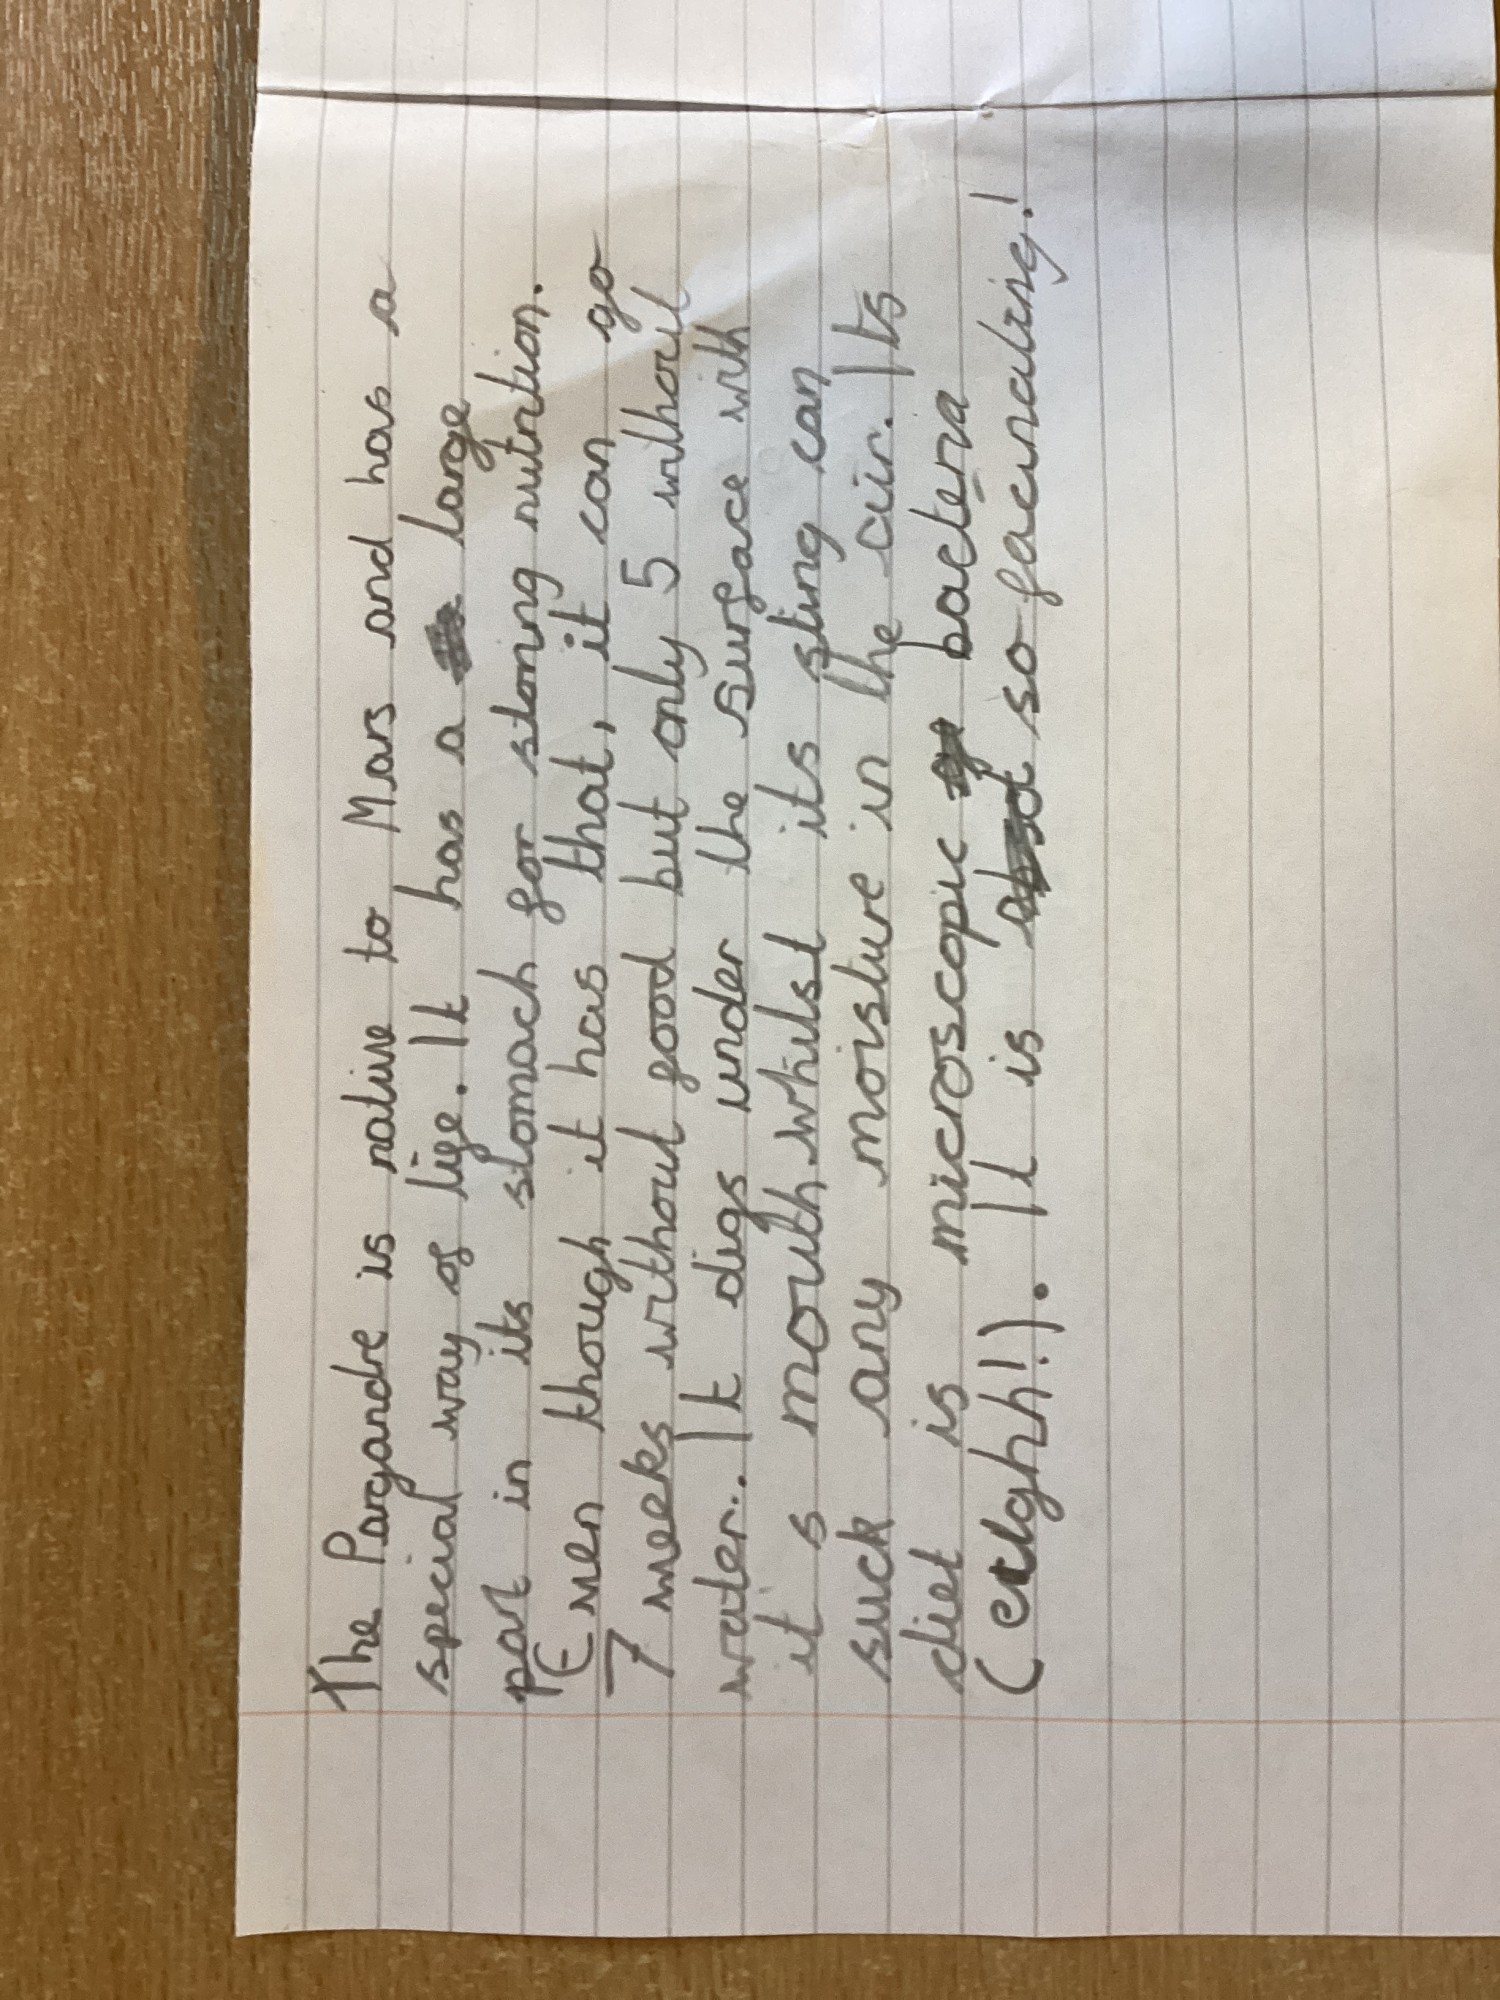 The Pargandre is native to Mars and has a
special way of life. It has a large
part in its stomach for storing nutrition.
Even though it has that, it can go
7 weeks without food but only 5 without
water.. It digs under the surface with
it s mouth whilst its sting can
suck any moisture in the air. Its
diet is microscopic bacteria
(eughh!). It is so facinating!